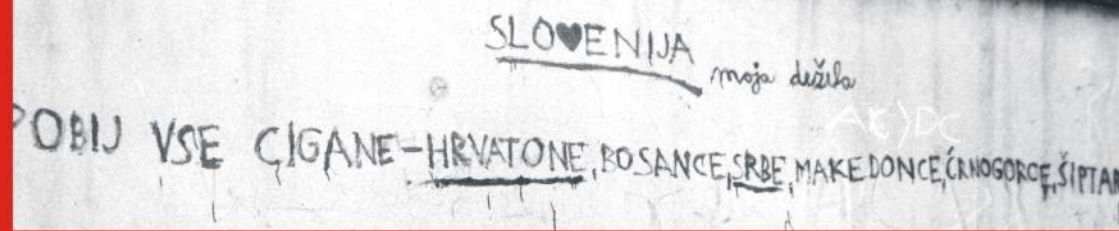 SLO♥ENIJA
moja dežela
AC)DC
POBIJ VSE CIGANE-HRVATONE, BOSANCE, SRBE, MAKEDONCE, ČRNOGORCE, ŠIPTAR